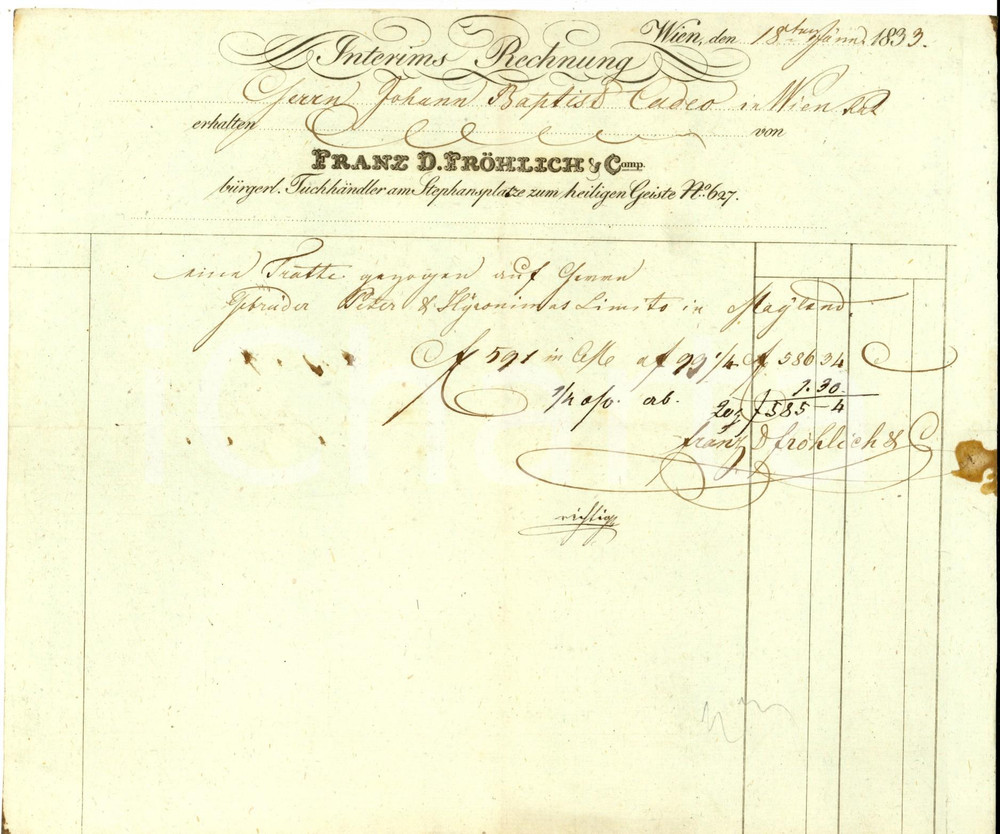 Wien, den 18ten Jänn. 1833.
Interims Rechnung
Herrn Johann Baptist Cadeo in Wien hat
erhalten von
FRANZ D. FRÖHLICH & Comp.
bürgerl. Tuchhändler am Stephansplatze zum heiligen Geiste No. 627.
eine Tratte gezogen auf Herrn
Gebrüder Peter & Hÿronimus Limito in Maÿland.
f 591 in af 99 1/4 f 586 34
1/4 o/o ab. 1.30
f 585-4
Franz D Fröhlich & C
richtig